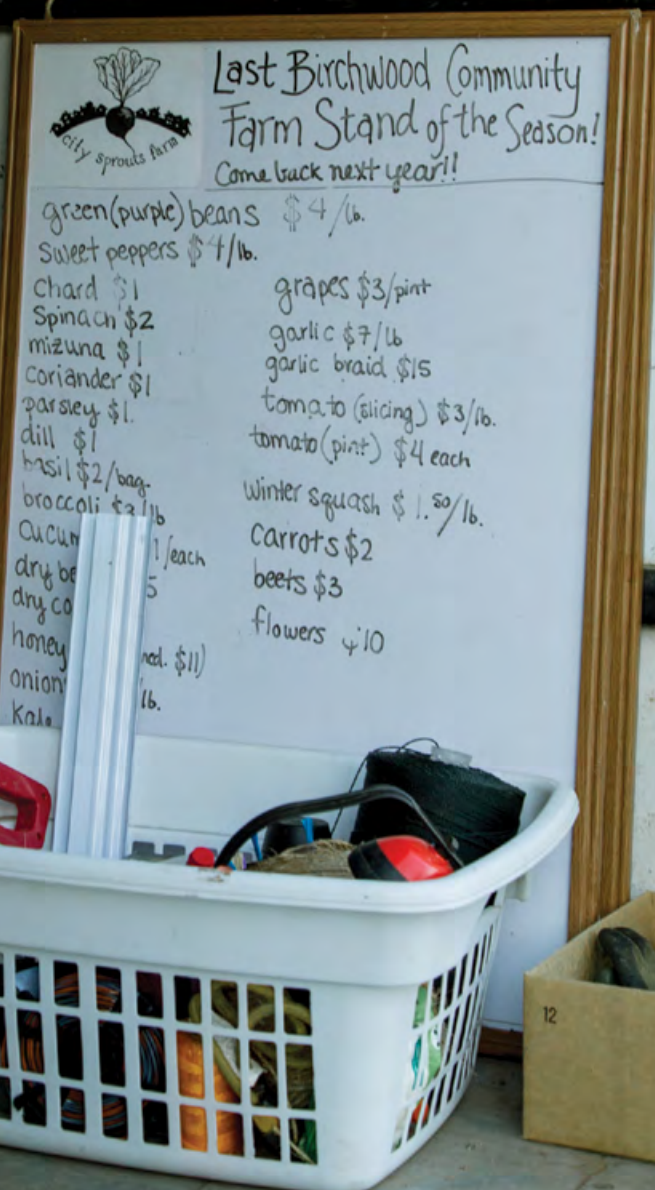 city sprouts farm
Last Birchwood Community
Farm Stand of the Season!
Come back next year!!
green (purple) beans $4/lb.
sweet peppers $4/lb.
chard $1
Spinach $2
mizuna $1
coriander $1
parsley $1.
dill $1
basil $2/bag.
broccoli $3/lb
cucum 1/each
dry be 5
dry co
honey ned. $11)
onion lb.
Kale
grapes $3/pint
garlic $7/lb
garlic braid $15
tomato (slicing) $3/lb.
tomato (pint) $4 each
winter squash $1.50/lb.
carrots $2
beets $3
flowers 10
12